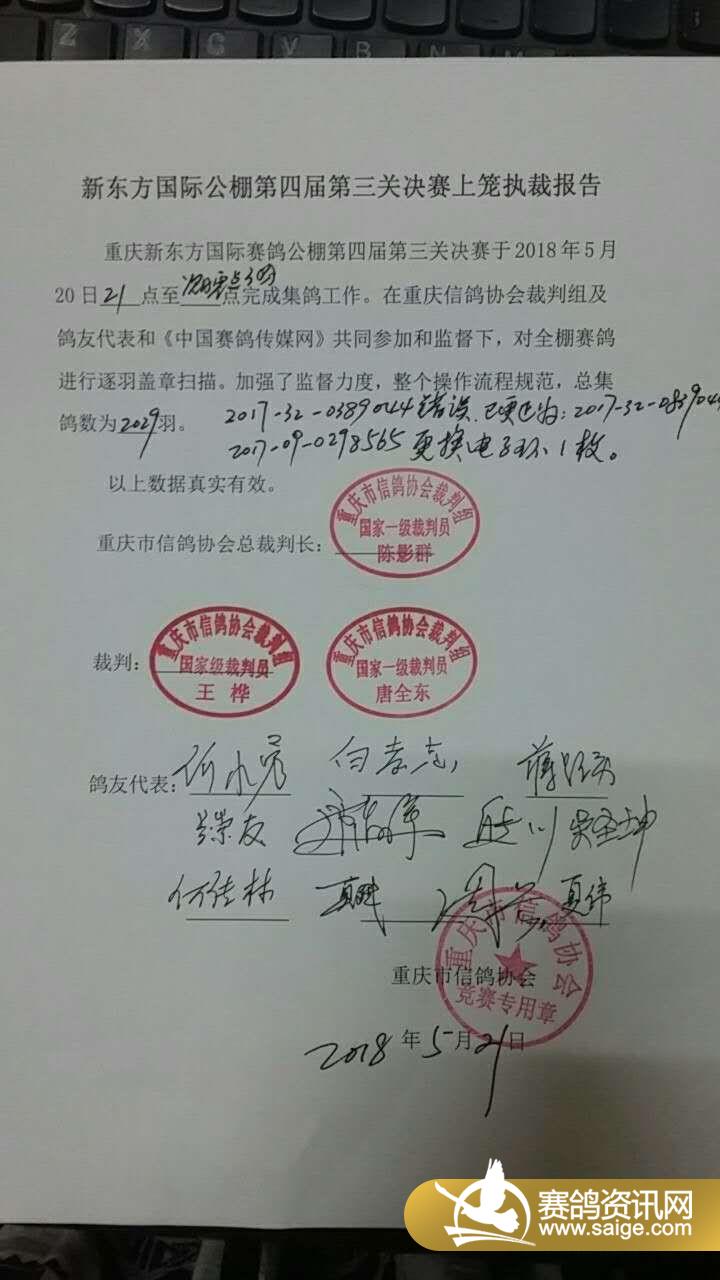 Z X C V B N M
新东方国际公棚第四届第三关决赛上笼执裁报告
重庆新东方国际赛鸽公棚第四届第三关决赛于2018年5月
20日21点至次日零点点完成集鸽工作。在重庆信鸽协会裁判组及
鸽友代表和《中国赛鸽传媒网》共同参加和监督下，对全棚赛鸽
进行逐羽盖章扫描。加强了监督力度，整个操作流程规范，总集
鸽数为2029羽。 2017-32-0389044错误，已更正为：2017-32-083904
2017-09-0298565更换电子环1枚。
以上数据真实有效。
重庆市信鸽协会裁判组
国家一级裁判员
重庆市信鸽协会总裁判长：陈影群
重庆市信鸽协会裁判组 重庆市信鸽协会裁判组
裁判：国家级裁判员 国家一级裁判员
王桦 唐全东
鸽友代表： 向孝志
何佳林 夏伟
重庆市信鸽协会
重庆市信鸽协会
竞赛专用章
2018年5月21日
赛鸽资讯网
www.saige.com